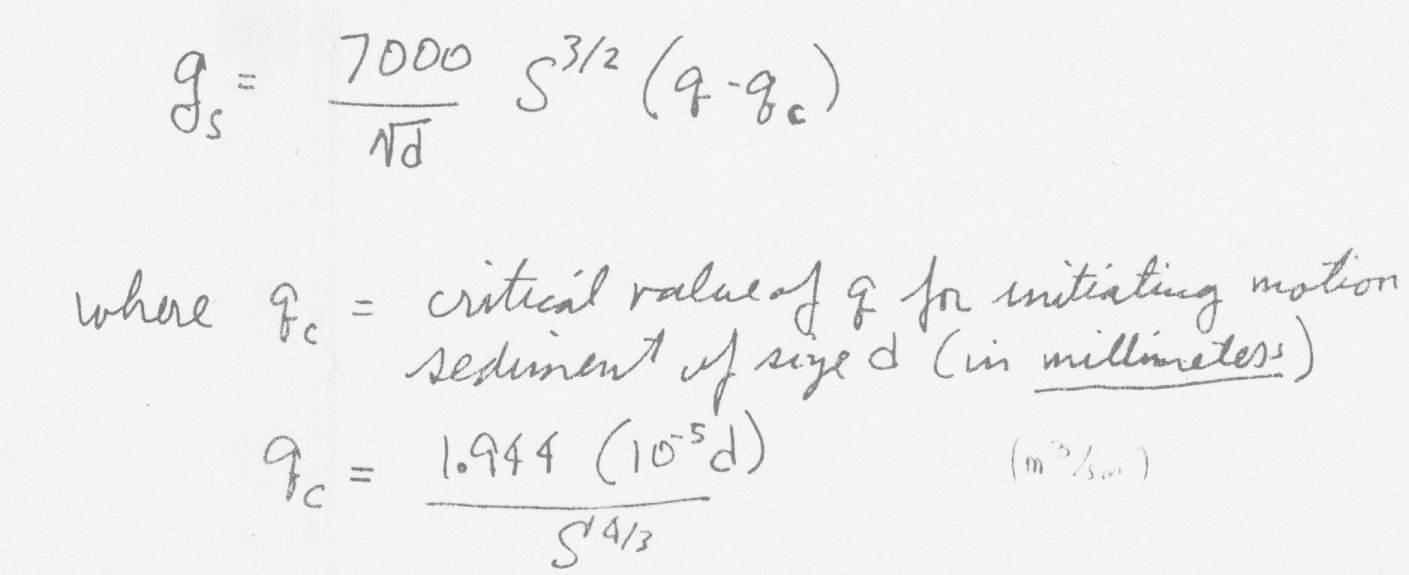 g_s = 7000 / √d S^{3/2} (q - q_c)
where q_c = critical value of q for initiating motion
sediment of size d (in millimeters)
q_c = 1.944 (10^{-5} d) / S^{4/3} (m^3/sm)